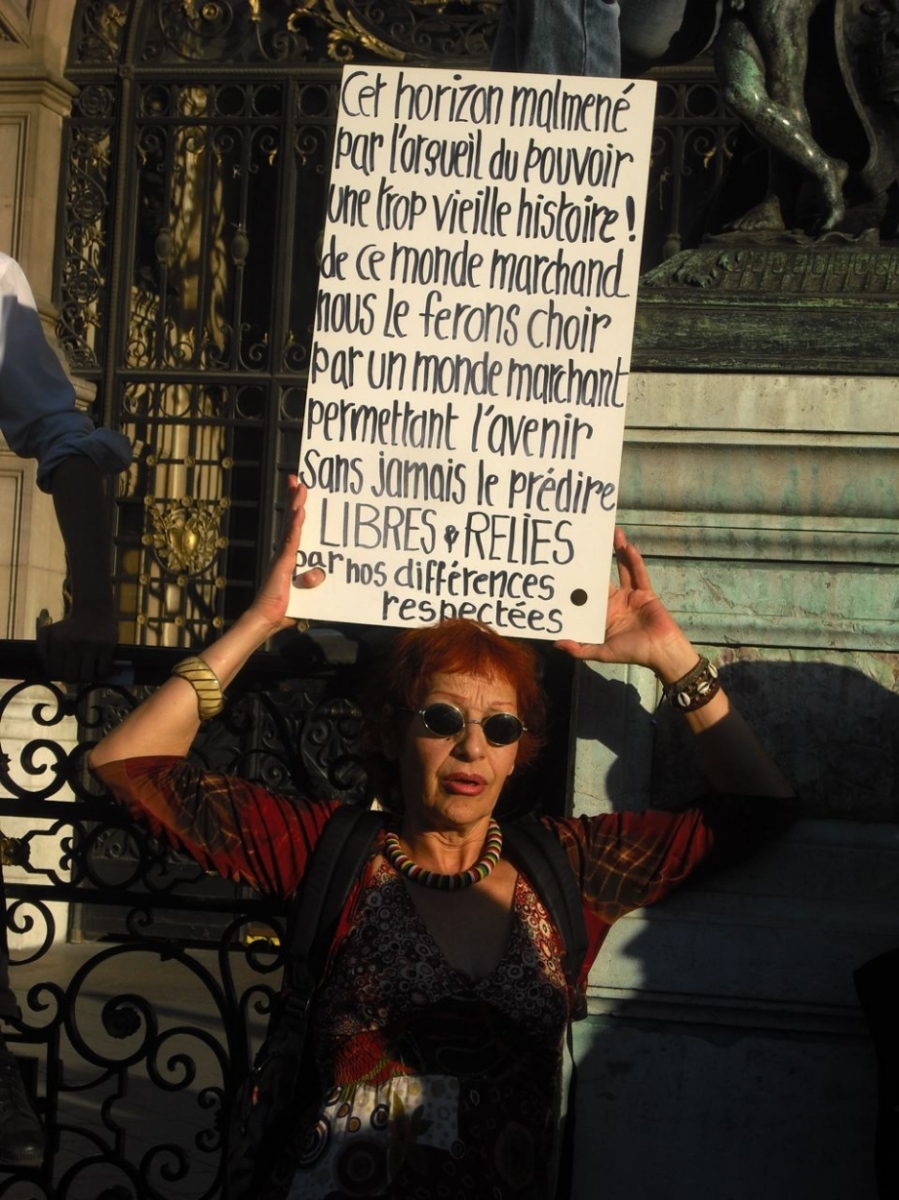 Cet horizon malmené
par l'orgueil du pouvoir
une trop vieille histoire !
de ce monde marchand
nous le ferons choir
par un monde marchant
permettant l'avenir
sans jamais le prédire
LIBRES & RELIES
par nos différences
respectées